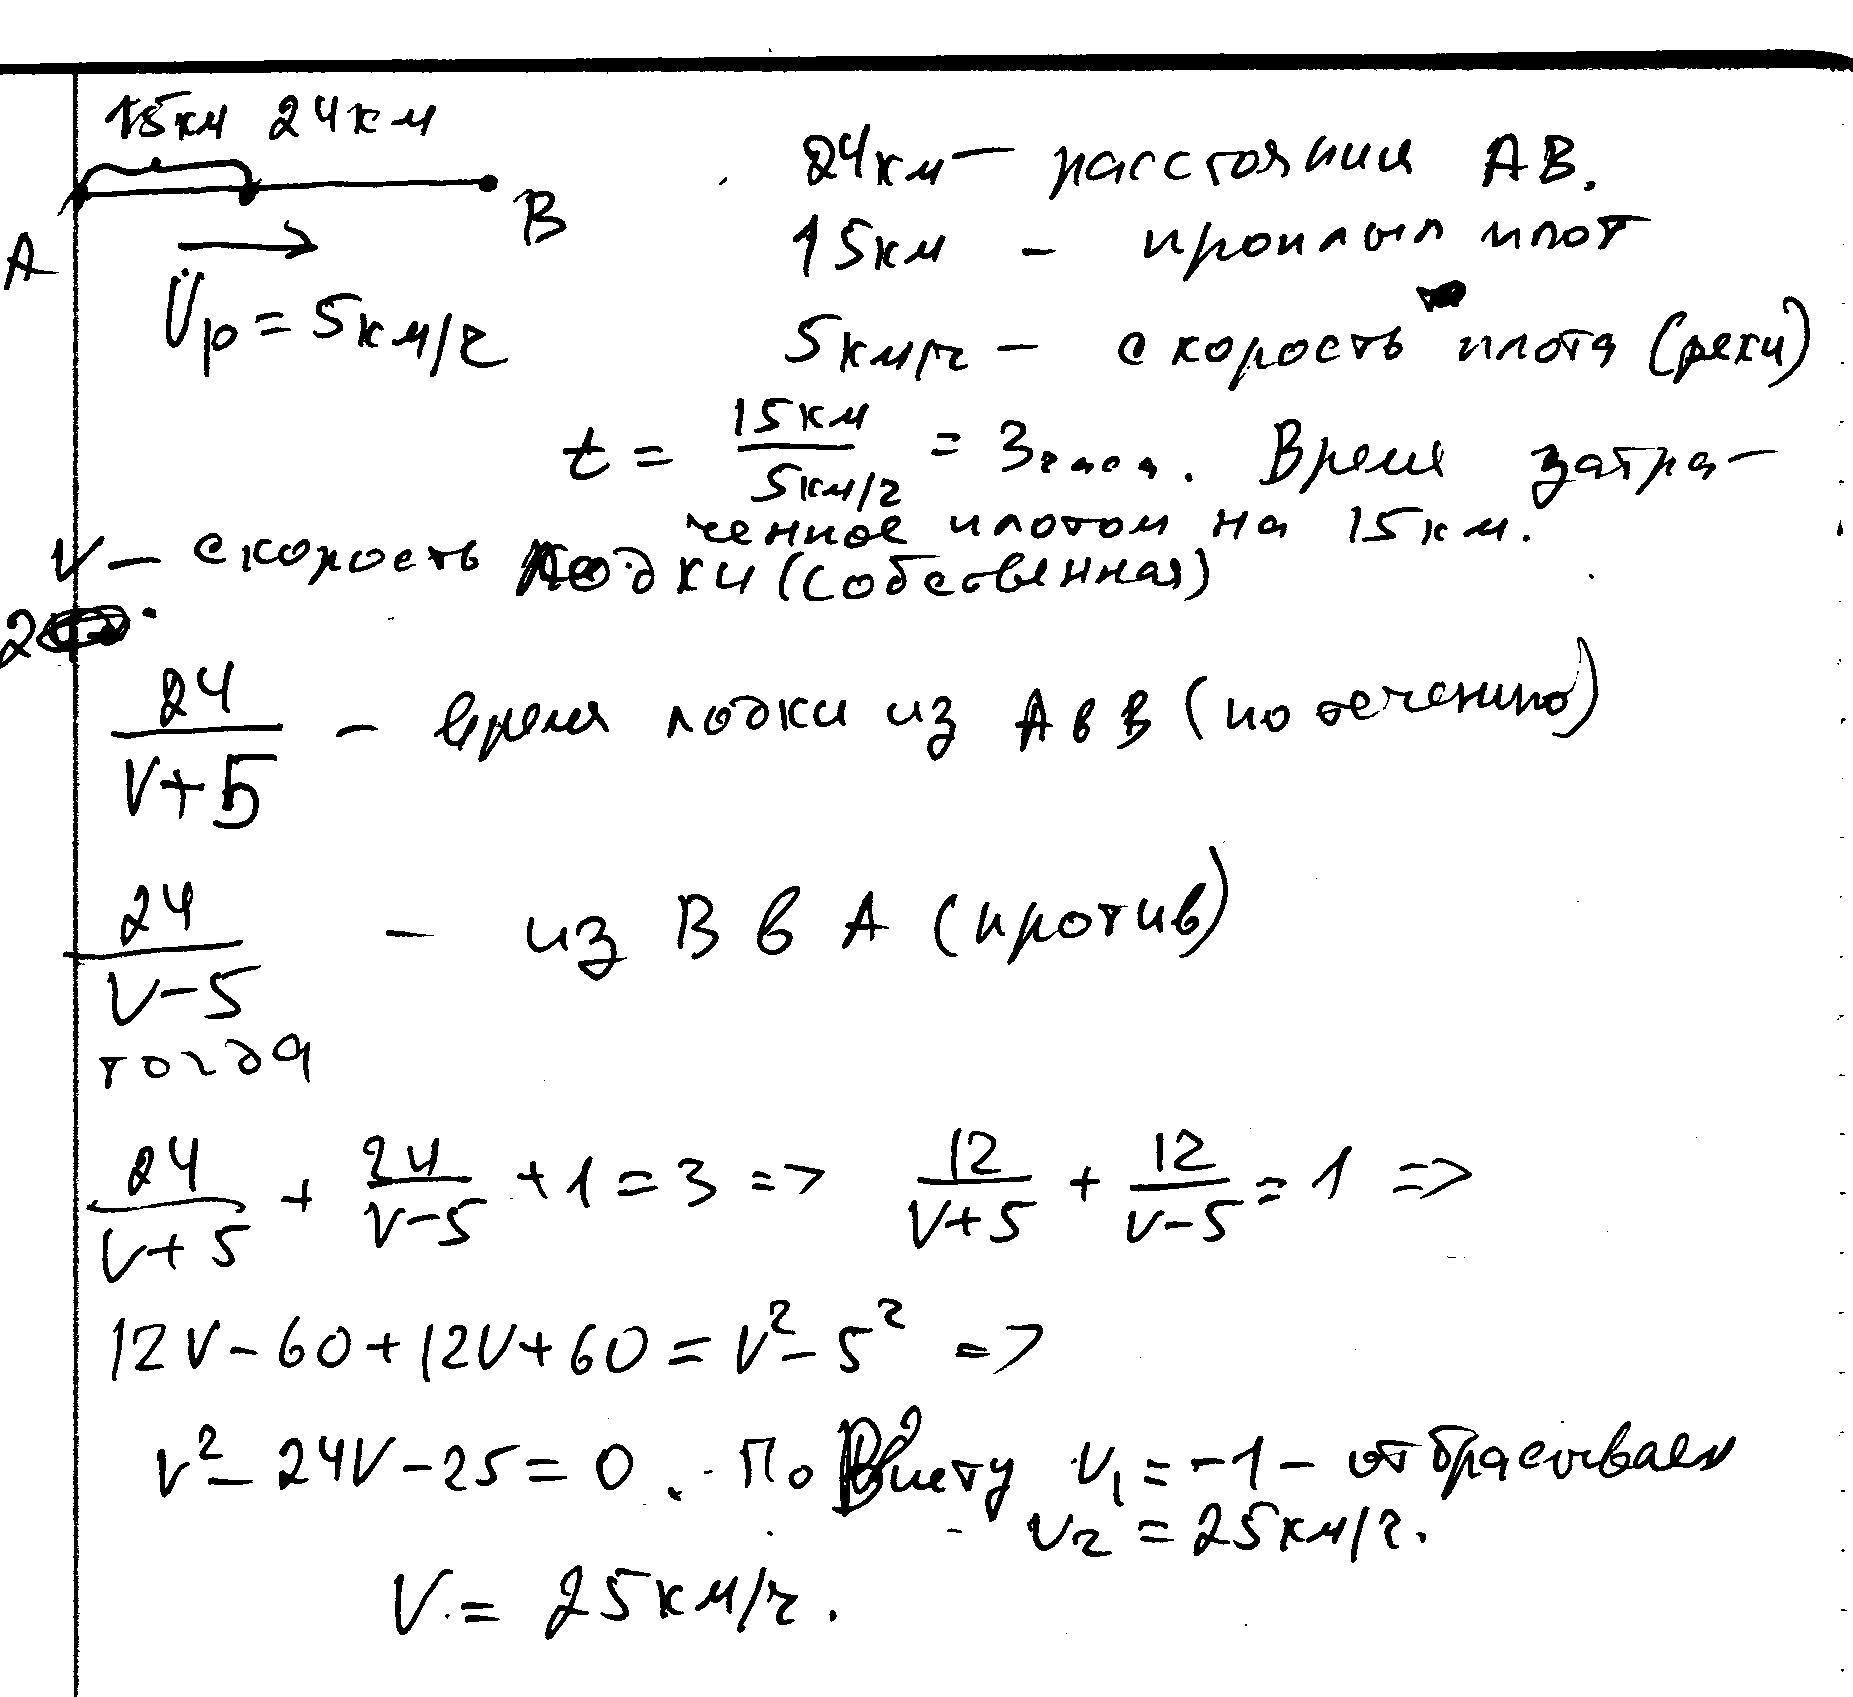 15км 24км
A B
Vр = 5км/ч
24км — расстояния AB.
15км - проплыл плот
5км/ч — скорость плота (реки)
t = 15км/5км/ч = 3часа. Время затра-
ченное плотом на 15км.
V — скорость лодки (собственная)
2
24/V+5 - время лодки из A в B (по течению)
24/V-5 - из B в A (против)
тогда
24/V+5 + 24/V-5 + 1 = 3 => 12/V+5 + 12/V-5 = 1 =>
12V - 60 + 12V + 60 = V² - 5² =>
V² - 24V - 25 = 0. По Виету V₁ = -1 - отбрасываем
V₂ = 25км/ч.
V = 25км/ч.